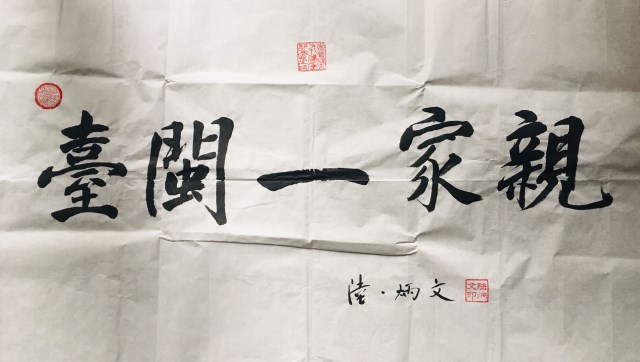 臺閩一家親
陸·炳文